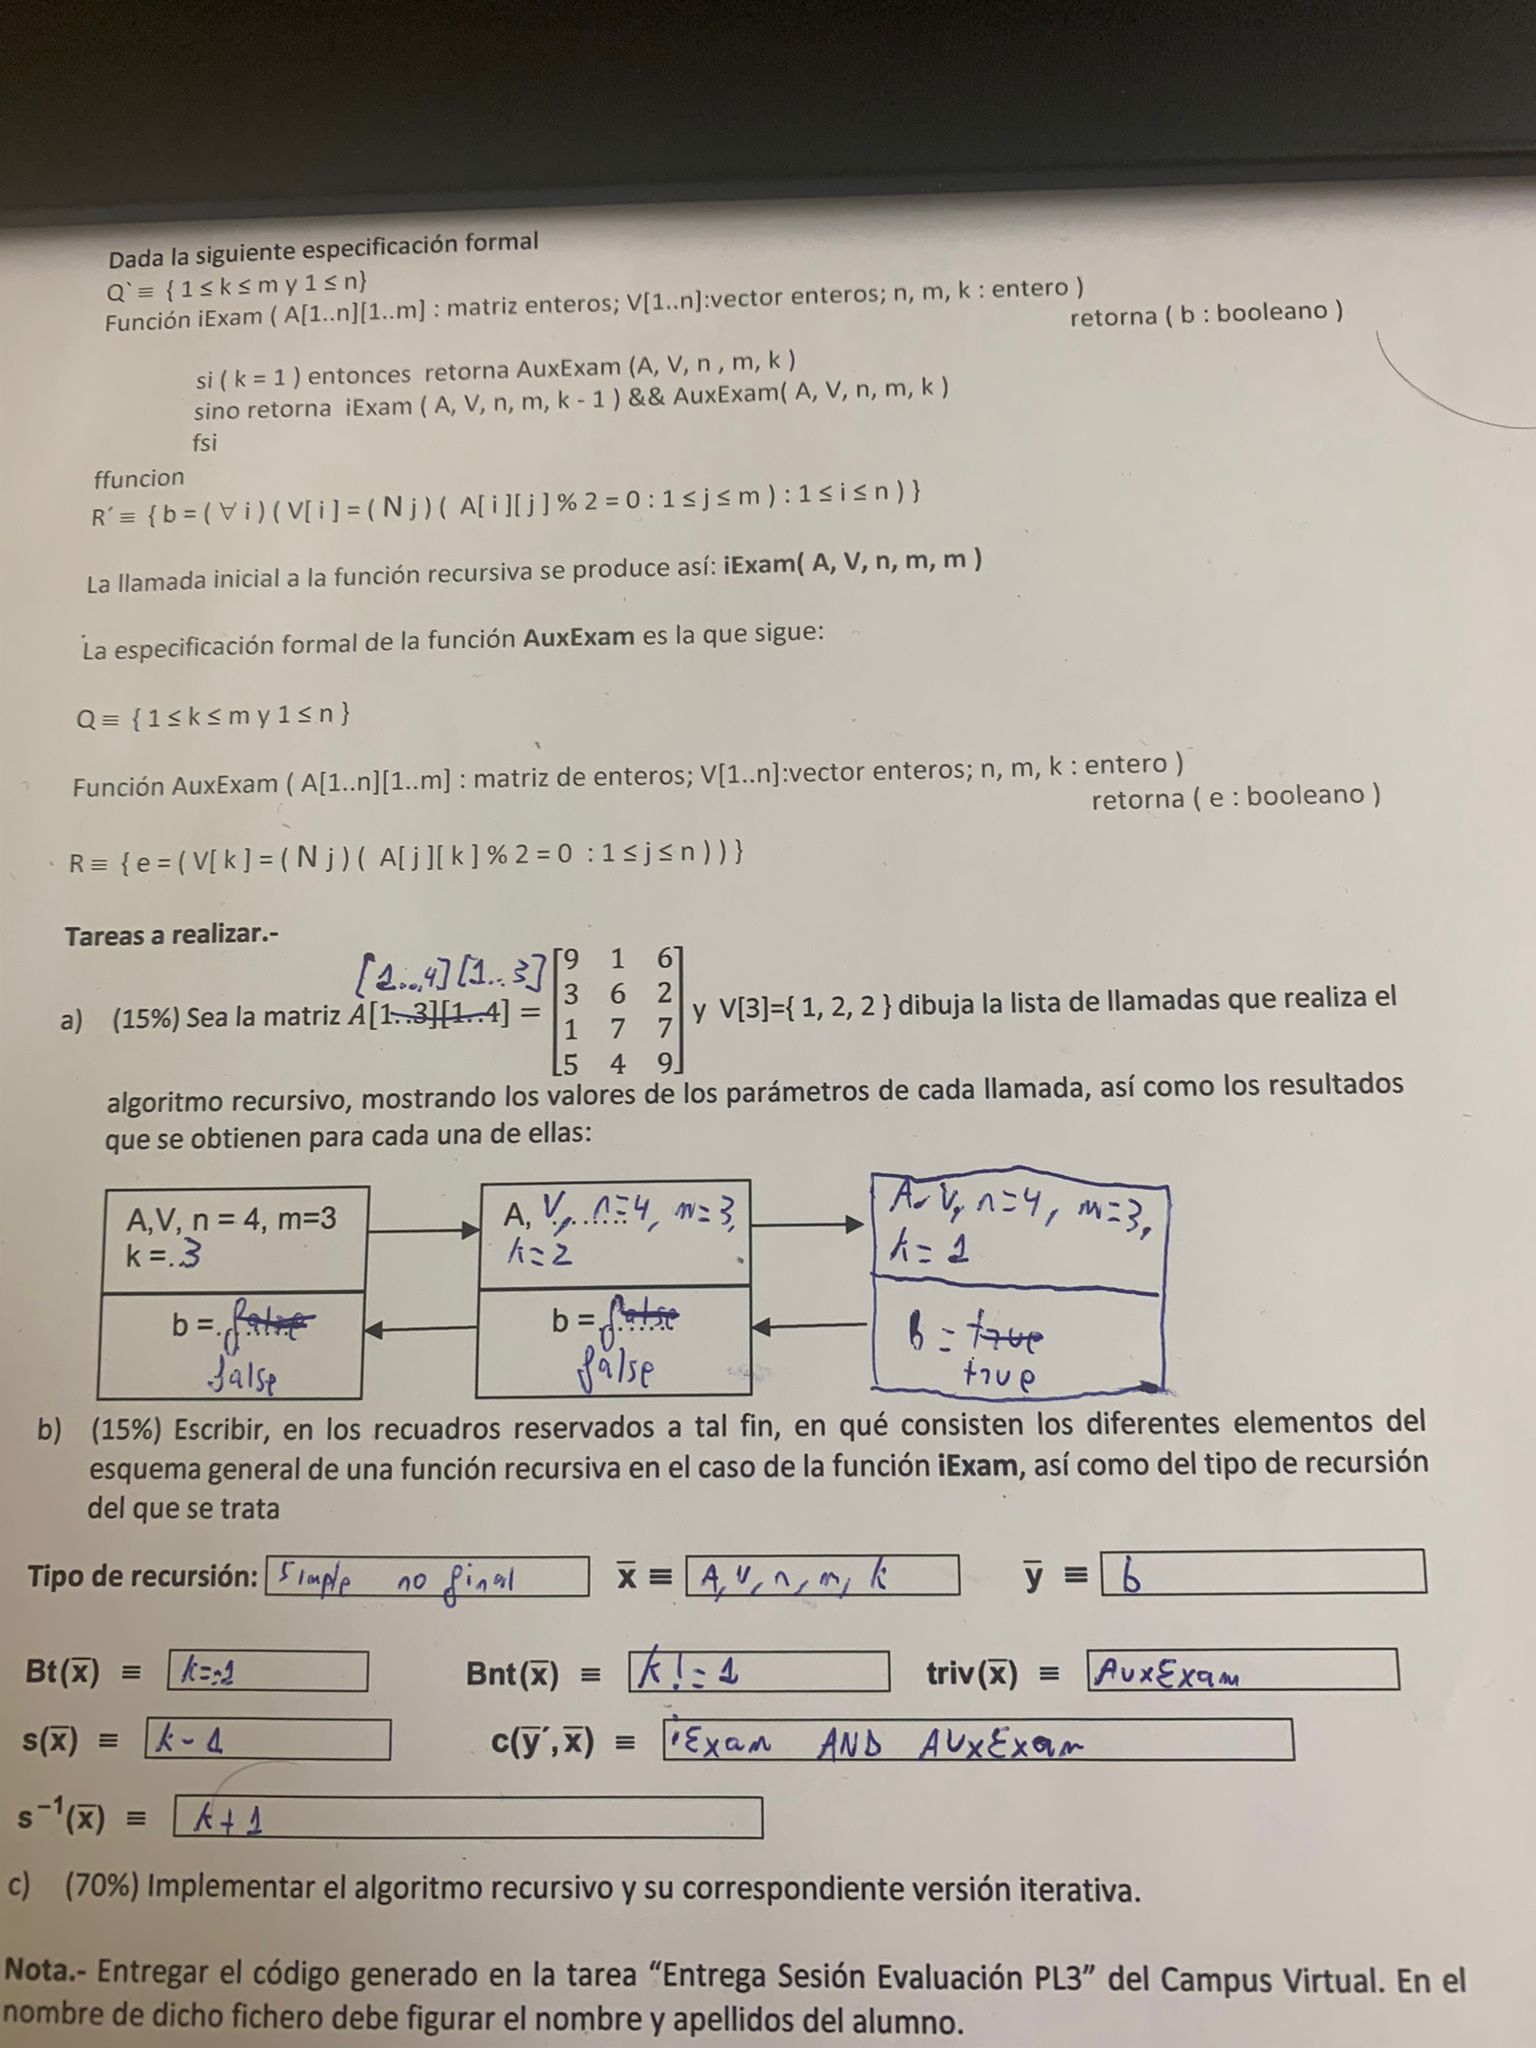 Dada la siguiente especificación formal
Q` ≡ { 1 ≤ k ≤ m y 1 ≤ n}
Función iExam ( A[1..n][1..m] : matriz enteros; V[1..n]:vector enteros; n, m, k : entero )
retorna ( b : booleano )
si ( k = 1 ) entonces retorna AuxExam (A, V, n , m, k )
sino retorna iExam ( A, V, n, m, k - 1 ) && AuxExam( A, V, n, m, k )
fsi
ffuncion
R´ ≡ { b = ( ∀ i ) ( V[ i ] = ( N j ) ( A[ i ][ j ] % 2 = 0 : 1 ≤ j ≤ m ) : 1 ≤ i ≤ n ) }
La llamada inicial a la función recursiva se produce así: iExam( A, V, n, m, m )
La especificación formal de la función AuxExam es la que sigue:
Q ≡ { 1 ≤ k ≤ m y 1 ≤ n }
Función AuxExam ( A[1..n][1..m] : matriz de enteros; V[1..n]:vector enteros; n, m, k : entero )
retorna ( e : booleano )
R ≡ { e = ( V[ k ] = ( N j ) ( A[ j ][ k ] % 2 = 0 : 1 ≤ j ≤ n ) ) }
Tareas a realizar.-
[1...4][1..3]
9 1 6
3 6 2
a) (15%) Sea la matriz A[1..3][1..4] = y V[3]={ 1, 2, 2 } dibuja la lista de llamadas que realiza el
1 7 7
5 4 9
algoritmo recursivo, mostrando los valores de los parámetros de cada llamada, así como los resultados
que se obtienen para cada una de ellas:
A,V, n = 4, m=3
k =.3
b =.false
false
A, V, ...... n=4, m=3,
k=2
b = false
false
A, V, n=4, m=3,
k=1
b = true
true
b) (15%) Escribir, en los recuadros reservados a tal fin, en qué consisten los diferentes elementos del
esquema general de una función recursiva en el caso de la función iExam, así como del tipo de recursión
del que se trata
Tipo de recursión: simple no final x̅ ≡ A, V, n, m, k y̅ ≡ b
Bt(x̅) ≡ k==1 Bnt(x̅) ≡ k!=1 triv(x̅) ≡ AuxExam
s(x̅) ≡ k-1 c(y̅´,x̅) ≡ iExam AND AUxExam
s⁻¹(x̅) ≡ k+1
c) (70%) Implementar el algoritmo recursivo y su correspondiente versión iterativa.
Nota.- Entregar el código generado en la tarea “Entrega Sesión Evaluación PL3” del Campus Virtual. En el
nombre de dicho fichero debe figurar el nombre y apellidos del alumno.